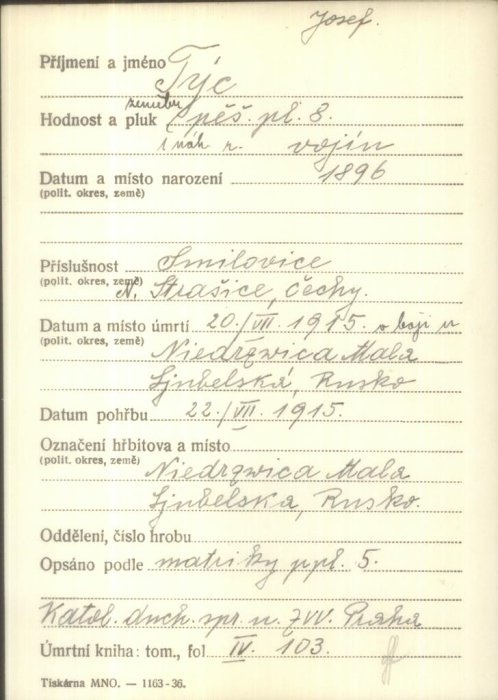 Josef.
Příjmení a jméno Týc
zeměbr.
Hodnost a pluk pěš. pl. 8.
1 náh r. vojín
Datum a místo narození 1896
(polit. okres, země)
Příslušnost Smilovice
(polit. okres, země) N. Strašice, Čechy.
Datum a místo úmrtí 20./VII. 1915. v boji u
(polit. okres, země) Niedrzwica Mala
Ljubelská, Rusko
Datum pohřbu 22./VII. 1915.
Označení hřbitova a místo
(polit. okres, země) Niedrzwica Mala
Ljubelska, Rusko.
Oddělení, číslo hrobu
Opsáno podle matriky p. pl. 5.
Katol. duch. spr. u. ZVV. Praha
Úmrtní kniha: tom., fol IV. 103.
Tiskárna MNO. — 1163-36.